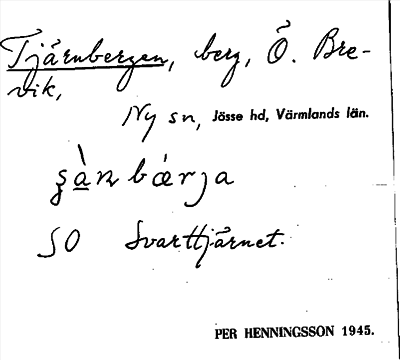 Tjärnbergen, berg, Ö. Bre-
vik,
Ny sn, Jösse hd, Värmlands län.
SO Svarttjärnet.
PER HENNINGSSON 1945.